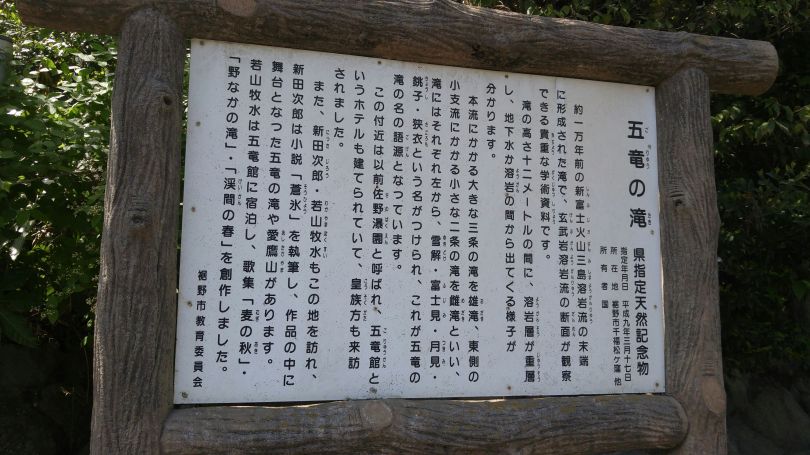 五竜の滝 県指定天然記念物
指定年月日 平成九年三月十七日
所在地 裾野市千福松ケ窪 他
所有者 国
約一万年前の新富士火山三島溶岩流の末端
に形成された滝で、玄武岩溶岩流の断面が観察
できる貴重な学術資料です。
滝の高さ十二メートルの間に、溶岩層が重層
し、地下水が溶岩の間から出てくる様子が
分かります。
本流にかかる大きな三条の滝を雄滝、東側の
小支流にかかる小さな二条の滝を雌滝といい、
滝にはそれぞれ左から、雪解・富士見・月見・
銚子・狭衣という名がつけられ、これが五竜の
滝の名の語源となっています。
この付近は以前佐野瀑園と呼ばれ、五竜館と
いうホテルも建てられていて、皇族方も来訪
されました。
また、新田次郎・若山牧水もこの地を訪れ、
新田次郎は小説「蒼氷」を執筆し、作品の中に
舞台となった五竜の滝や愛鷹山があります。
若山牧水は五竜館に宿泊し、歌集「麦の秋」・
「野なかの滝」・「渓間の春」を創作しました。
裾野市教育委員会